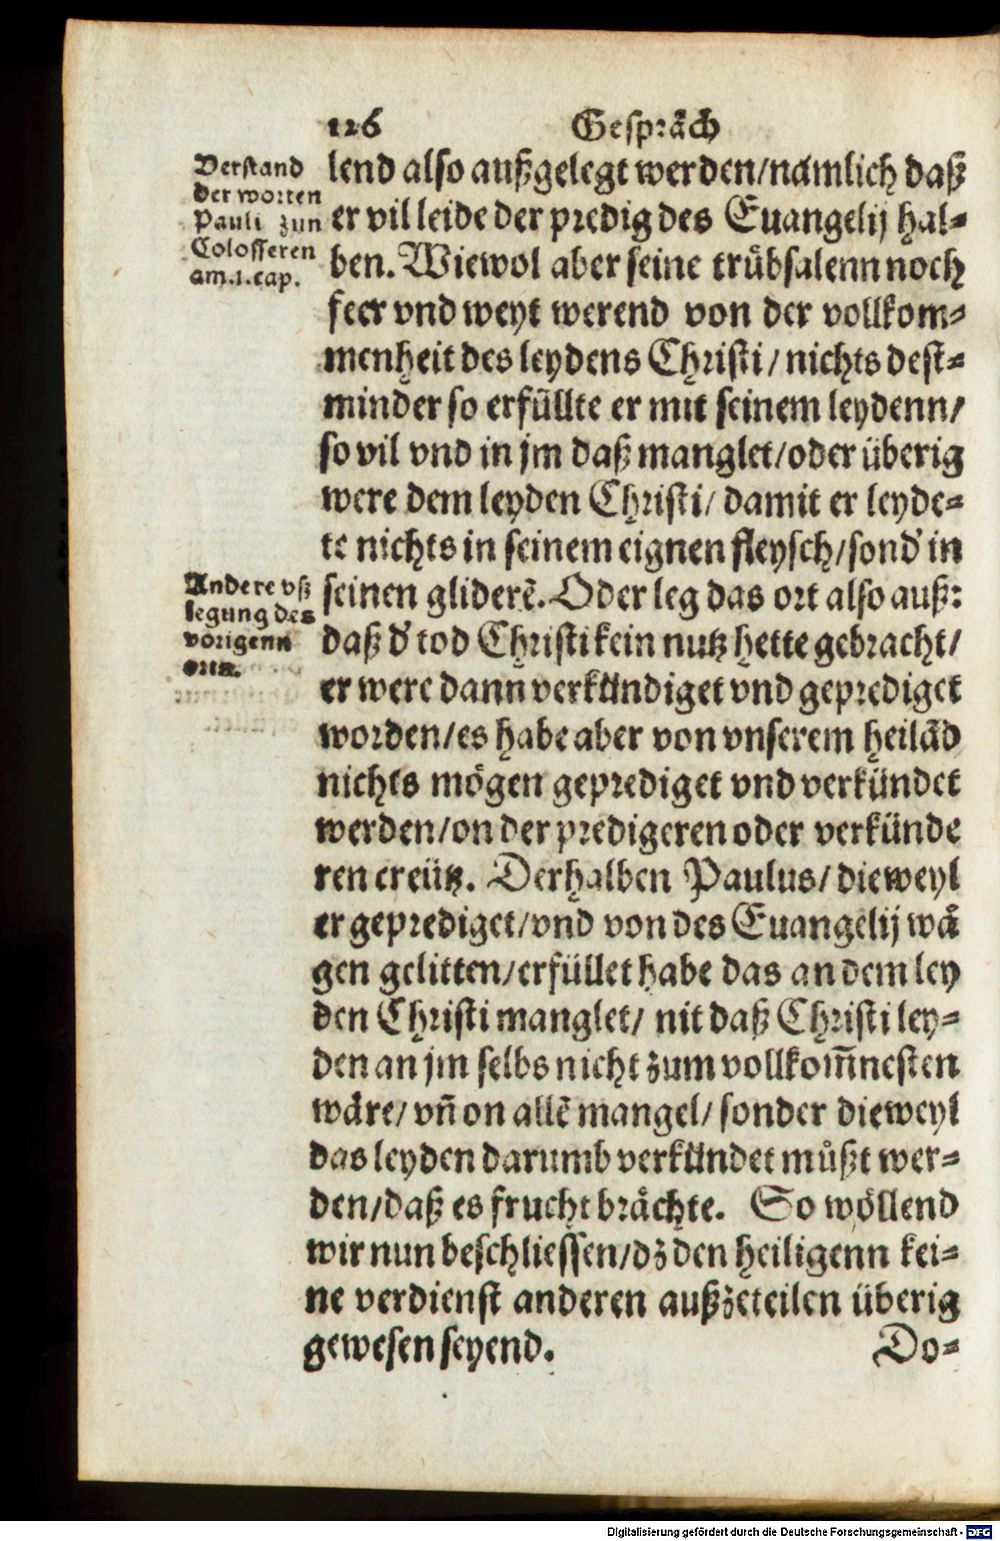 126 Gespraͤch
Verstand
der worten
Pauli zun
Colosseren
am .1. cap.
lend also außgelegt werden/naͤmlich daß
er vil leide der predig des Euangelij hal⸗
ben. Wiewol aber seine truͤbsalenn noch
feer vnd weyt werend von der vollkom⸗
menheit des leydens Christi/ nichts dest⸗
minder so erfüllte er mit seinem leydenn/
so vil vnd in jm daß manglet/oder überig
were dem leyden Christi/ damit er leyde⸗
te nichts in seinem eignen fleysch/sond' in
seinen gliderē. Oder leg das ort also auß:
Andere vß
legung des
vorigenn
orts.
daß d' tod Christi kein nutz hette gebracht/
er were dann verkündiget vnd geprediget
worden/es habe aber von vnserem heilād
nichts moͤgen geprediget vnd verkündet
werden/on der predigeren oder verkünde
ren creütz. Derhalben Paulus/ dieweyl
er geprediget/vnd von des Euangelij waͤ
gen gelitten/erfüllet habe das an dem ley
den Christi manglet/ nit daß Christi ley⸗
den an jm selbs nicht zum vollkom̄nesten
waͤre/ vn̄ on allē mangel/ sonder dieweyl
das leyden darumb verkündet muͤßt wer⸗
den/daß es frucht braͤchte. So woͤllend
wir nun beschliessen/dz den heiligenn kei⸗
ne verdienst anderen außzeteilen überig
gewesen seyend. Do⸗
Digitalisierung gefördert durch die Deutsche Forschungsgemeinschaft - DFG